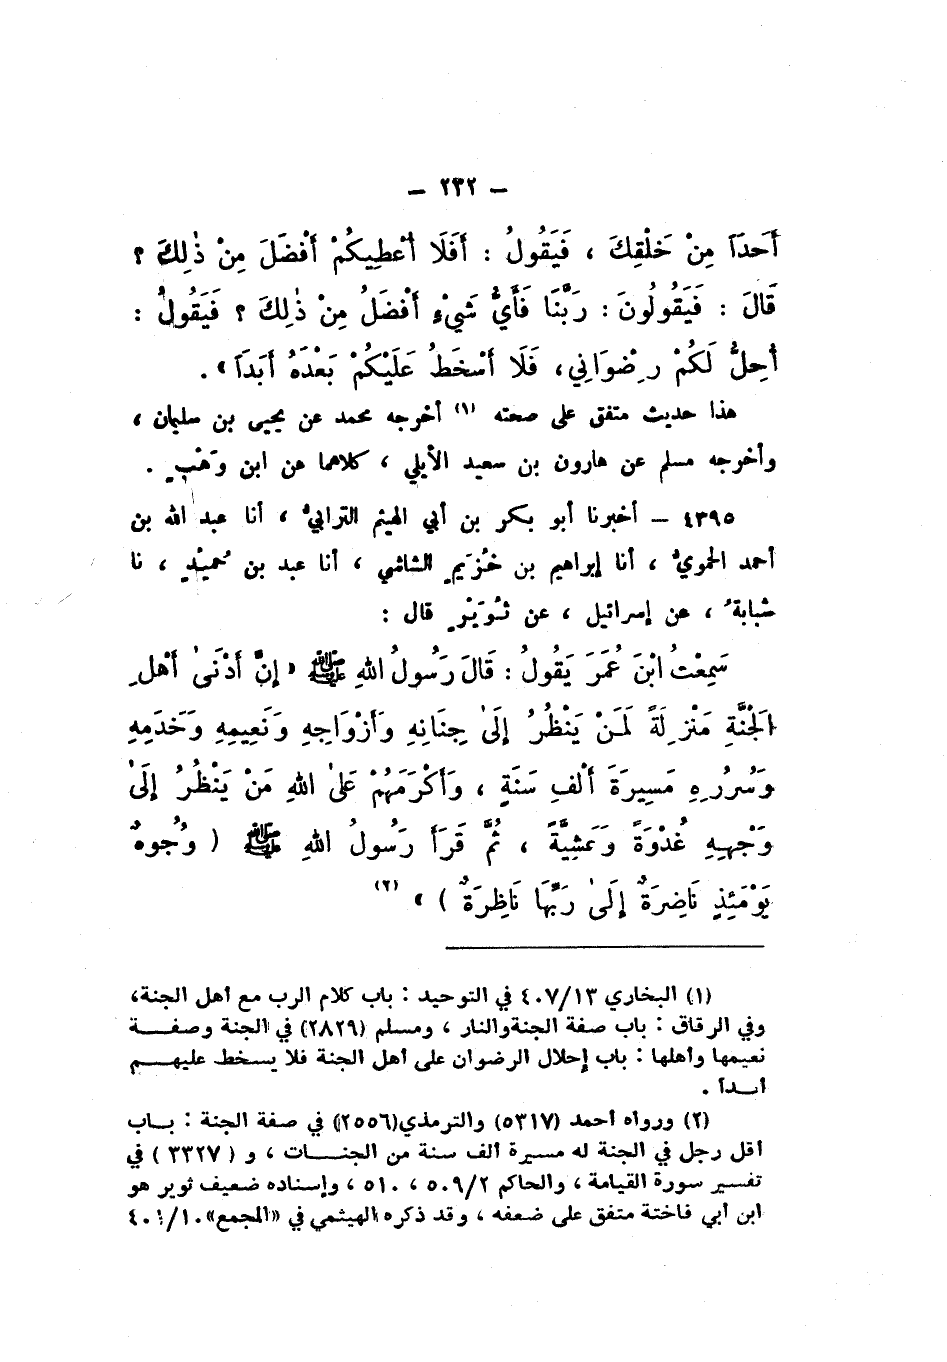 — ٢٣٢ —
أَحَدَاً مِنْ خَلْقِكَ ، فَيَقُولُ : أَفَلَا أُعْطِيكُمْ أَفْضَلَ مِنْ ذٰلِكَ ؟
قَالَ : فَيَقُولُونَ : رَبَّنَا فَأَيُّ شَيْءٍ أَفْضَلُ مِنْ ذٰلِكَ ؟ فَيَقُولُ :
أُحِلُّ لَكُمْ رِضْوَانِي، فَلَا أَسْخَطُ عَلَيْكُمْ بَعْدَهُ أَبَدَاً » .
هذا حديث متفق على صحته (١) أخرجه محمد عن يحيى بن سليمان ،
وأخرجه مسلم عن هارون بن سعيد الأيلي ، كلاهما عن ابن وَهْبٍ .
٤٣٩٥ – أخبرنا أبو بكر بن أبي الهيثم الترابيُّ ، أنا عبد الله بن
أحمد الحمويُّ ، أنا إبراهيم بن خُزَيمٍ الشاشي ، أنا عبد بن حُميْدٍ ، نا
شبابةُ ، عن إسرائيل ، عن ثُوَيْرٍ قال :
سَمِعْتُ ابْنَ عُمَرَ يَقُولُ : قَالَ رَسُولُ اللهِ ﷺ « إِنَّ أَدْنَىٰ أَهْلِ
الْجَنَّةِ مَنْزِلَةً لَمَنْ يَنْظُرُ إِلَىٰ جِنَانِهِ وَأَزْوَاجِهِ وَنَعِيمِهِ وَخَدَمِهِ
وَسُرُرِهِ مَسِيرَةَ أَلْفِ سَنَةٍ ، وَأَكْرَمَهُمْ عَلَىٰ اللهِ مَنْ يَنْظُرُ إِلَىٰ
وَجْهِهِ غُدْوَةً وَعَشِيَّةً ، ثُمَّ قَرَأَ رَسُولُ اللهِ ﷺ ( وُجُوهٌ
يَوْمَئِذٍ نَاضِرَةٌ إِلَىٰ رَبِّهَا نَاظِرَةٌ ) » (٢)
(١) البخاري ٤٠٧/١٣ في التوحيد : باب كلام الرب مع أهل الجنة،
وفي الرقاق : باب صفة الجنة والنار ، ومسلم (٢٨٢٩) في الجنة وصفــة
نعيمها وأهلها : باب إحلال الرضوان على أهل الجنة فلا يسخط عليهــم
أبــداً .
(٢) ورواه أحمد (٥٣١٧) والترمذي (٢٥٥٦) في صفة الجنة : بــاب
أقل رجل في الجنة له مسيرة ألف سنة من الجنــات ، و ( ٣٣٢٧ ) في
تفسير سورة القيامة ، والحاكم ٥٠٩/٢ ، ٥١٠ ، وإسناده ضعيف ثوير هو
ابن أبي فاختة متفق على ضعفه ، وقد ذكره الهيثمي في «المجمع» ٤٠١/١٠